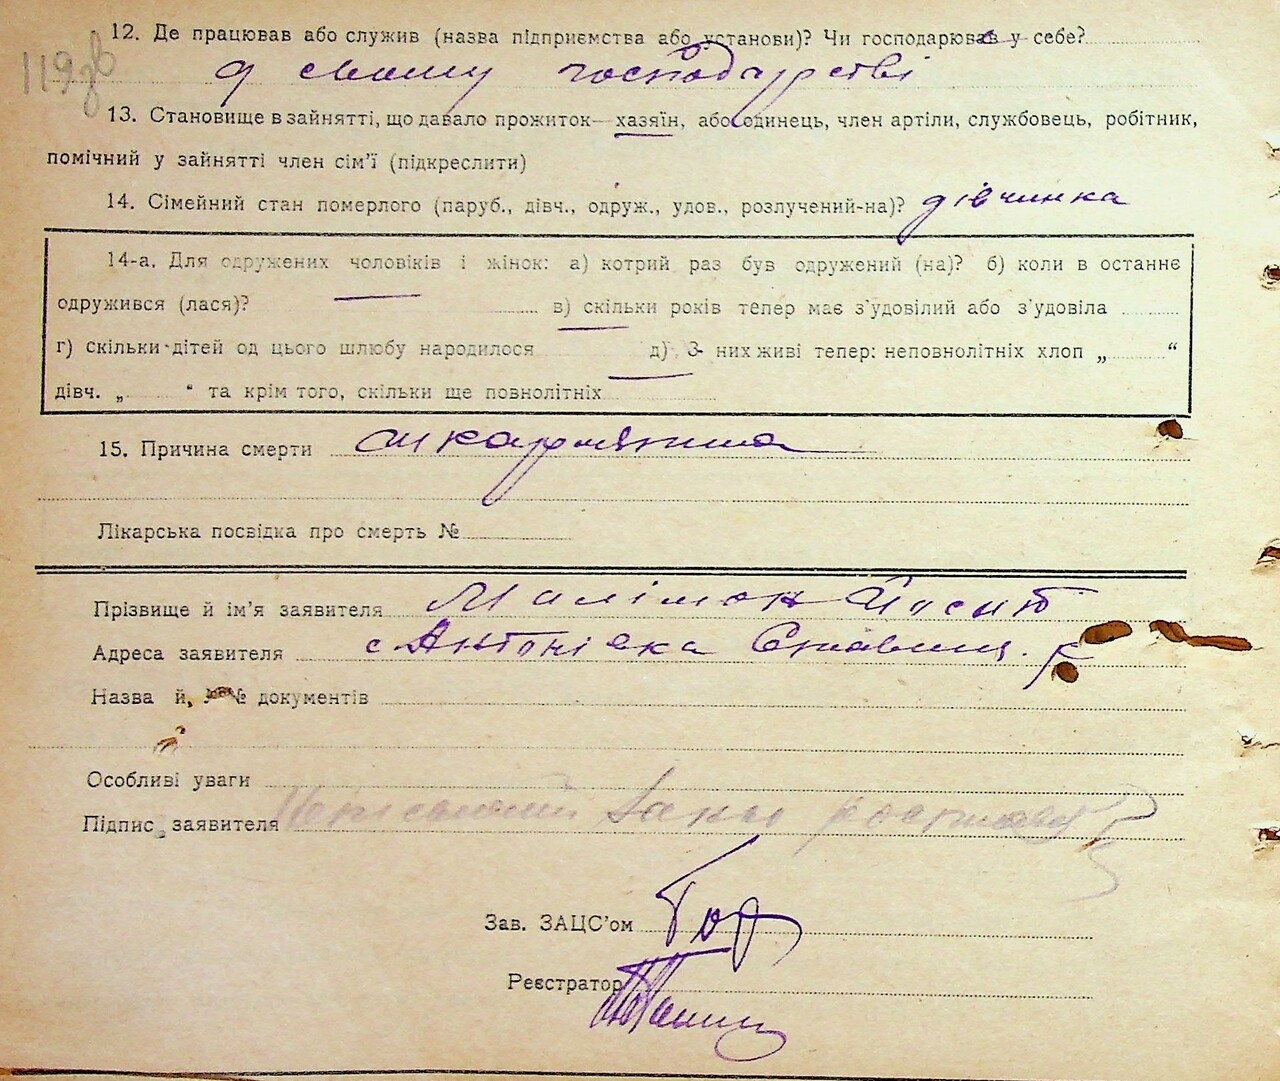 119зв
12. Де працював або служив (назва підприємства або установи)? Чи господарював у себе?
у своему господурстві
13. Становище в зайнятті, що давало прожиток—хазяїн, або одинець, член артіли, службовець, робітник,
помічний у зайнятті член сім'ї (підкреслити)
14. Сімейний стан померлого (паруб., дівч., одруж., удов., розлучений-на)? дівчинка
14-а. Для одружених чоловіків і жінок: а) котрий раз був одружений (на)? б) коли в останнє
одружився (лася)? — в) скільки років тепер має з'удовілий або з'удовіла
г) скільки дітей од цього шлюбу народилося д) З них живі тепер: неповнолітніх хлоп „ “
дівч. „ “ та крім того, скільки ще повнолітніх
15. Причина смерти шкарлятина
Лікарська посвідка про смерть №
Прізвище й ім'я заявителя Йосип
Адреса заявителя с Антонівка Ставищ. р
Назва й №№ документів
Особливі уваги
Підпис заявителя
Зав. ЗАЦС'ом
Реєстратор